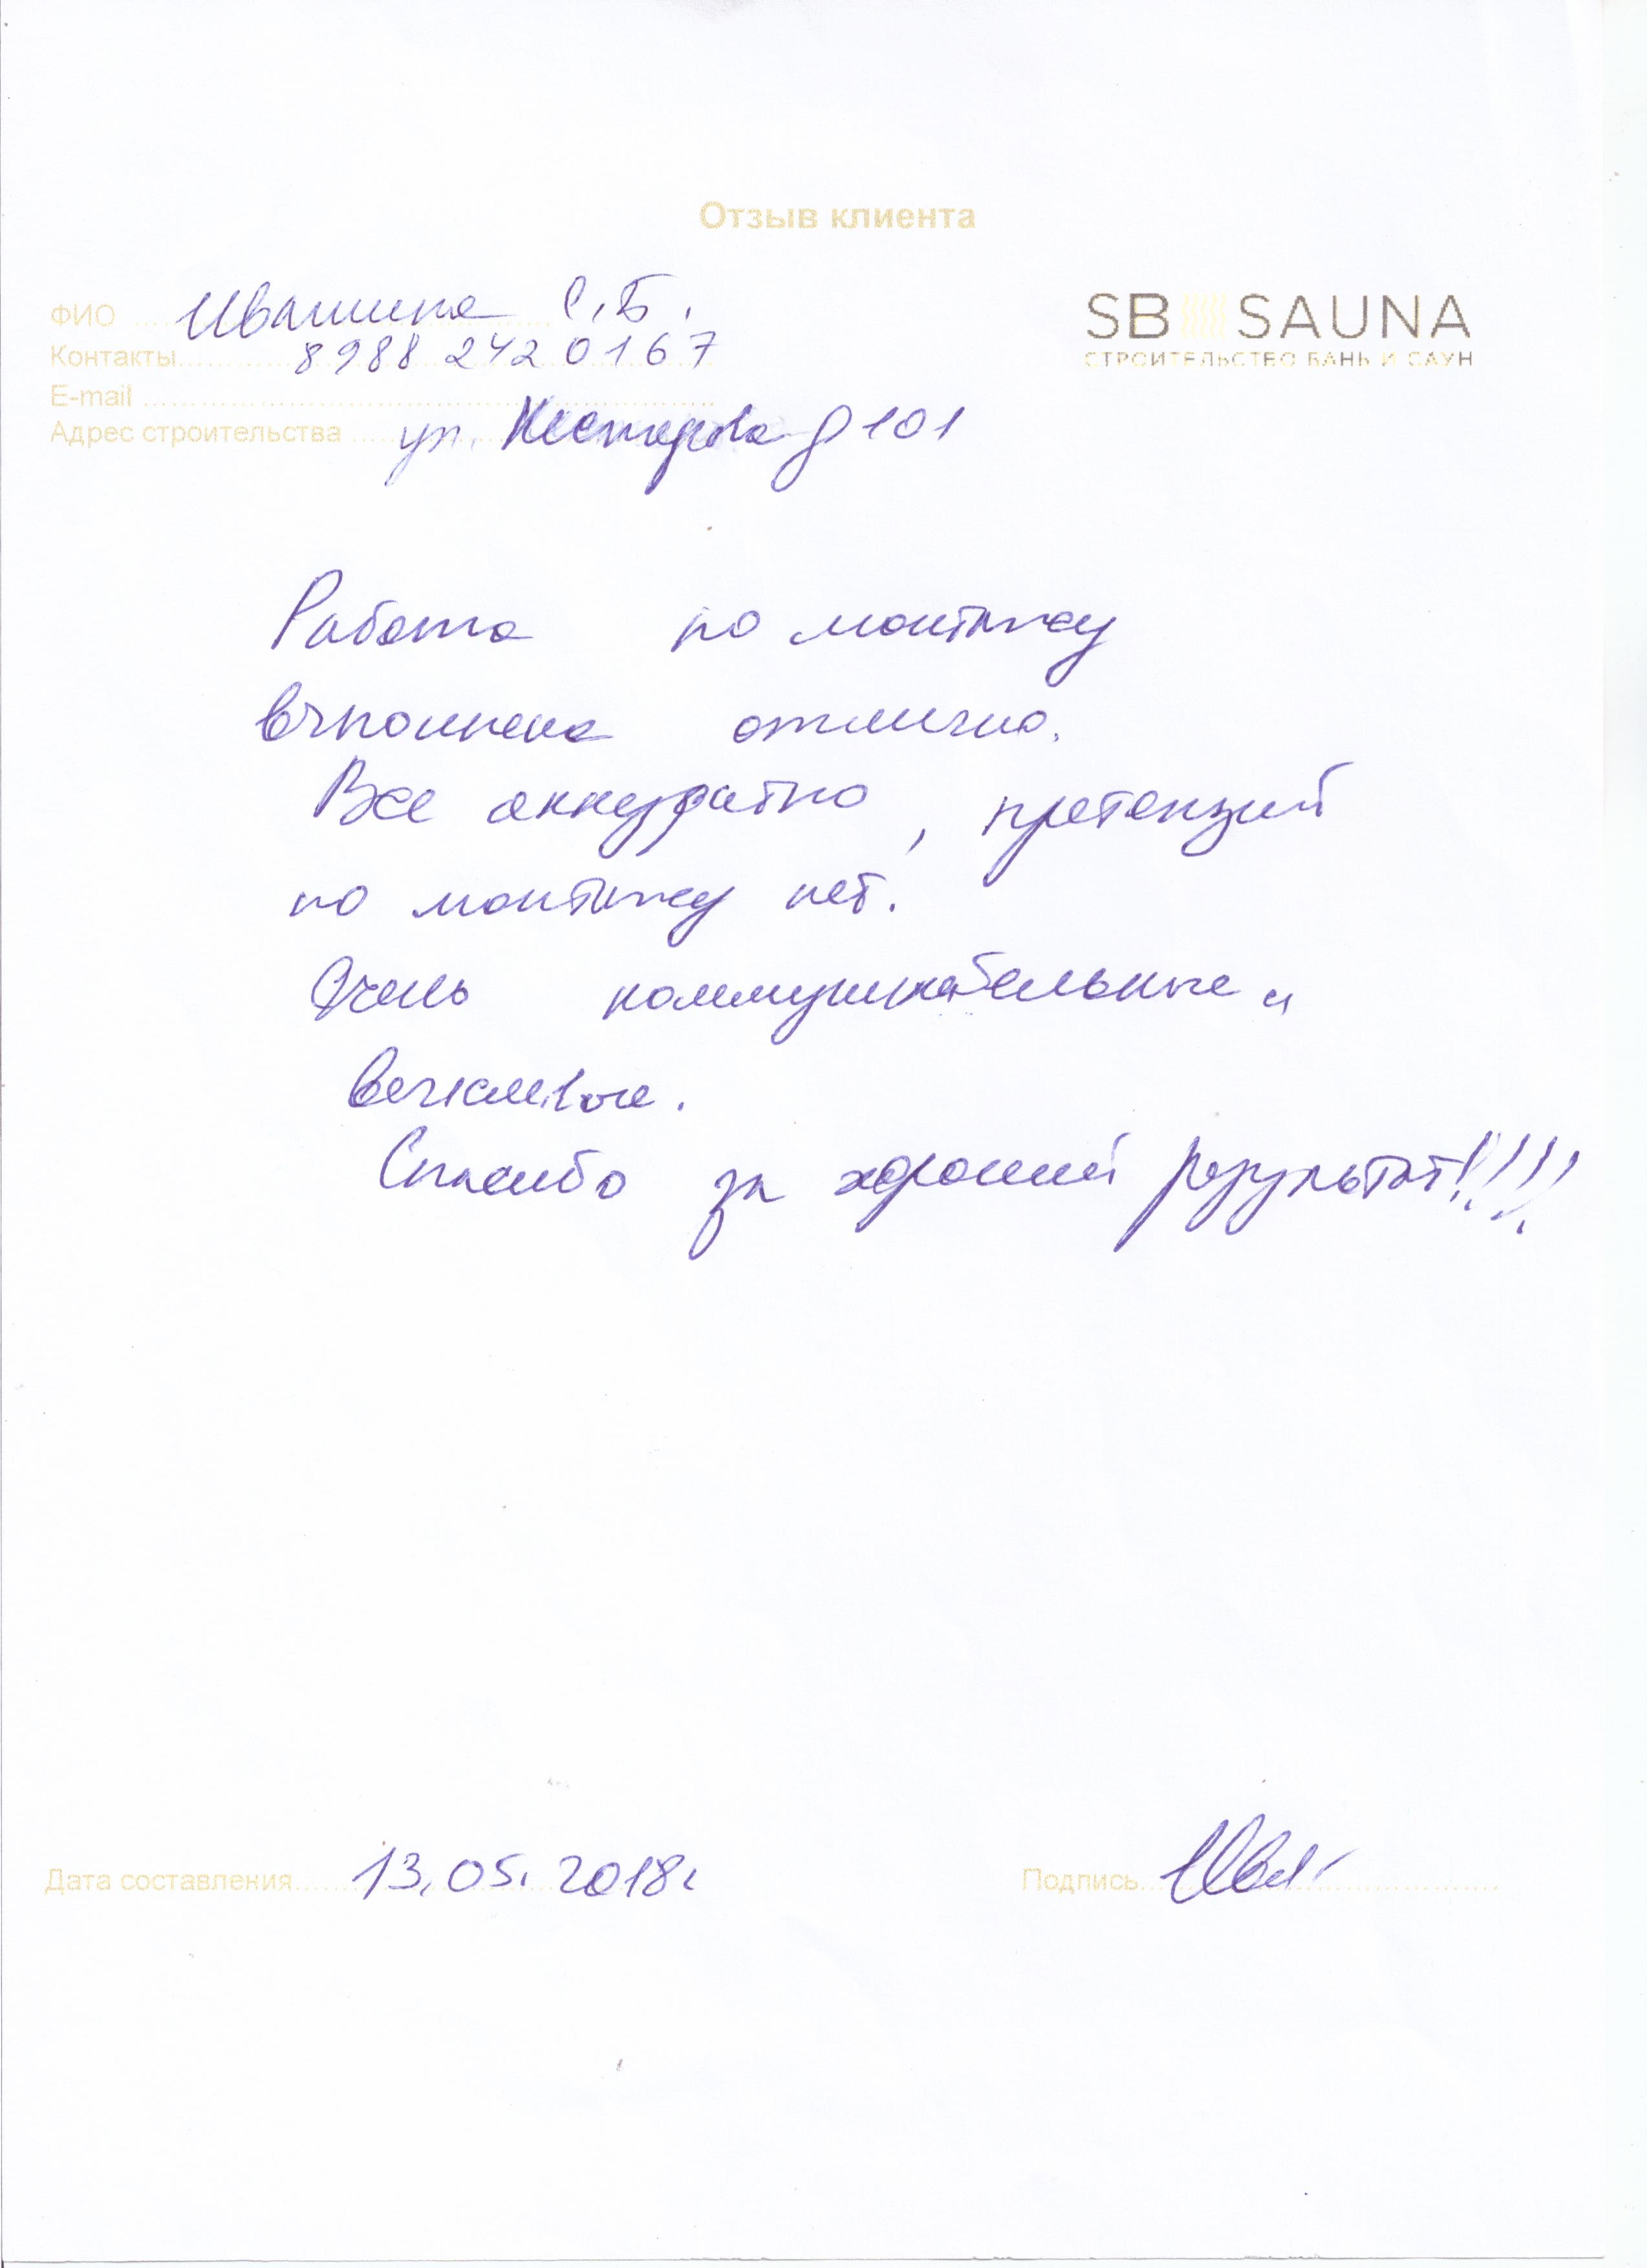 Отзыв клиента
ФИО Ивашина С.Б.
SB SAUNA
СТРОИТЕЛЬСТВО БАНЬ И САУН
Контакты 8988 242 0167
E-mail
Адрес строительства ул. Нестерова д 101
Работа по монтажу
выполнена отлично.
Все аккуратно, претензий
по монтажу нет.
Очень коммуникательные и
вежливые.
Спасибо за хороший результат!!!!!
Дата составления 13.05.2018г
Подпись